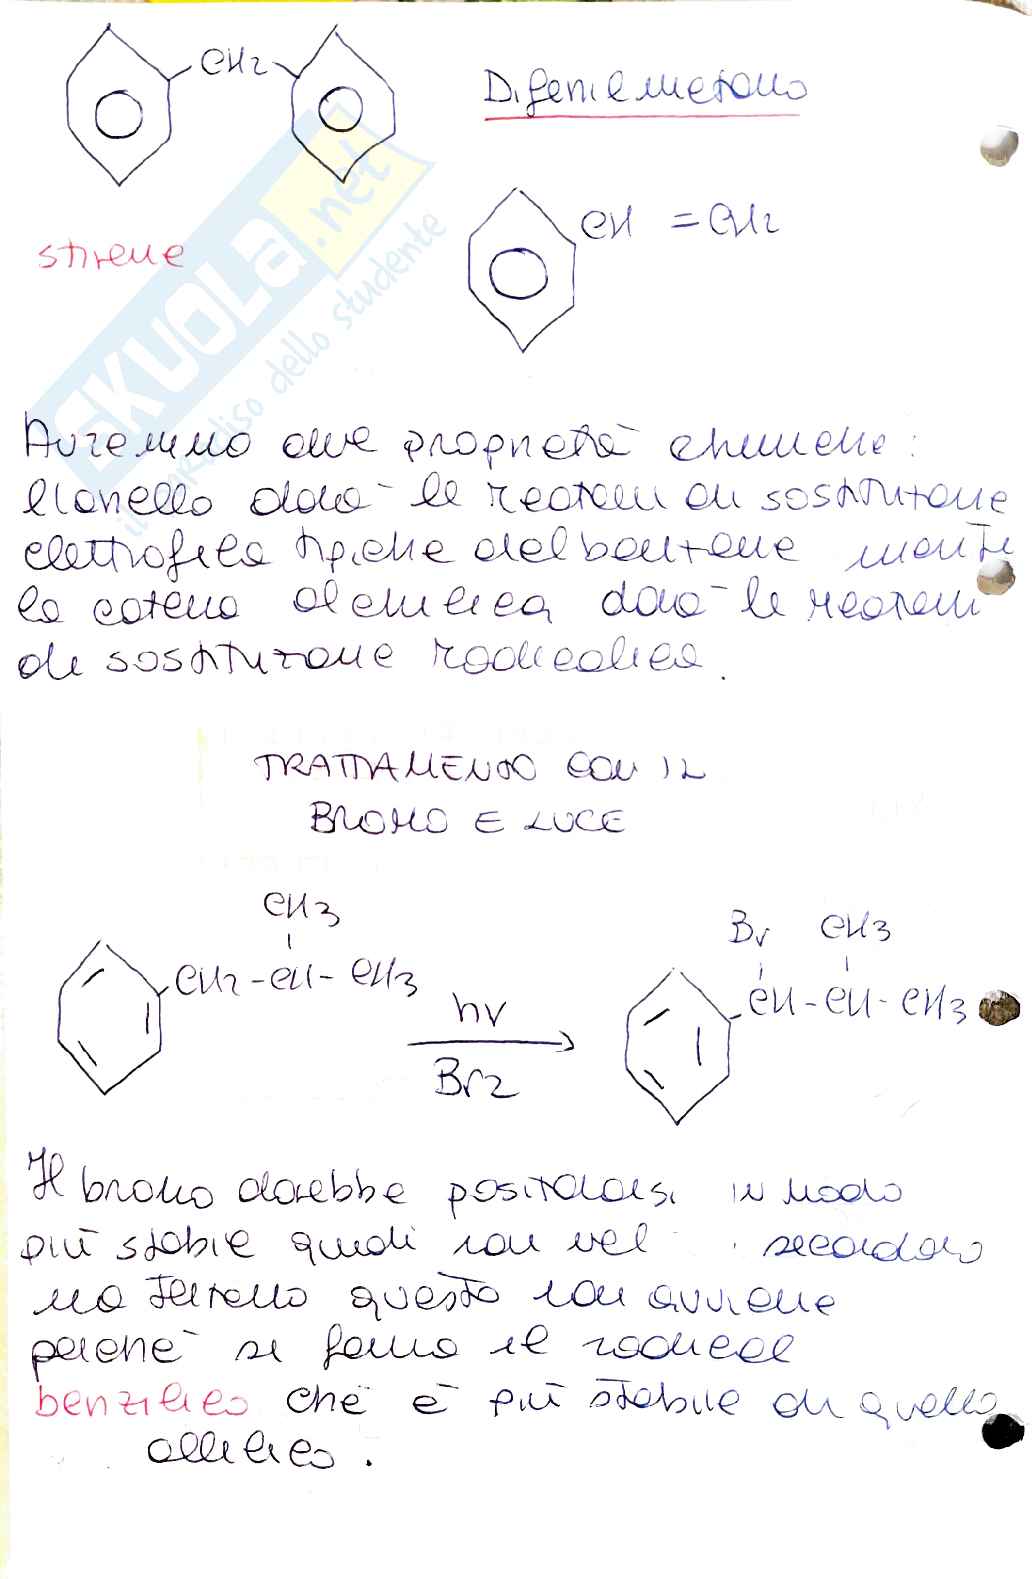 CH2
Difenilmetano
CH = CH2
stirene
SKUOLA.net
il paradiso dello studente
Avremmo due proprietà chimiche:
l'anello darà le reazioni di sostituzione
elettrofila tipiche del benzene mentre
la catena alchilica darà le reazioni
di sostituzione radicalica.
TRATTAMENTO CON IL
BROMO E LUCE
CH3
CH2 - CH - CH3
hν
Br2
Br CH3
CH - CH - CH3
Il bromo dovrebbe posizionarsi in modo
più stabile quindi non nel secondario
ma terziario questo non avviene
perchè si forma il radicale
benzilico che è più stabile di quello
allilico.